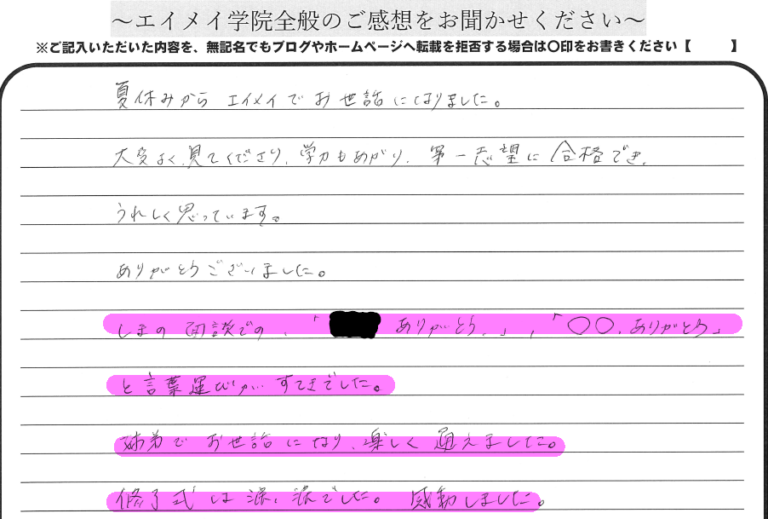 ～エイメイ学院全般のご感想をお聞かせください～
※ご記入いただいた内容を、無記名でもブログやホームページへ転載を拒否する場合は〇印をお書きください【　　】
夏休みから エイメイでお世話になりました。
大変よく見てくださり、学力もあがり、第一志望に合格でき、
うれしく思っています。
ありがとうございました。
の面談での、「 ありがとう。」、「〇〇、ありがとう」
と言葉選びが すてきでした。
姉弟でお世話になり、楽しく通えました。
修了式は涙、涙でした。 感動しました。